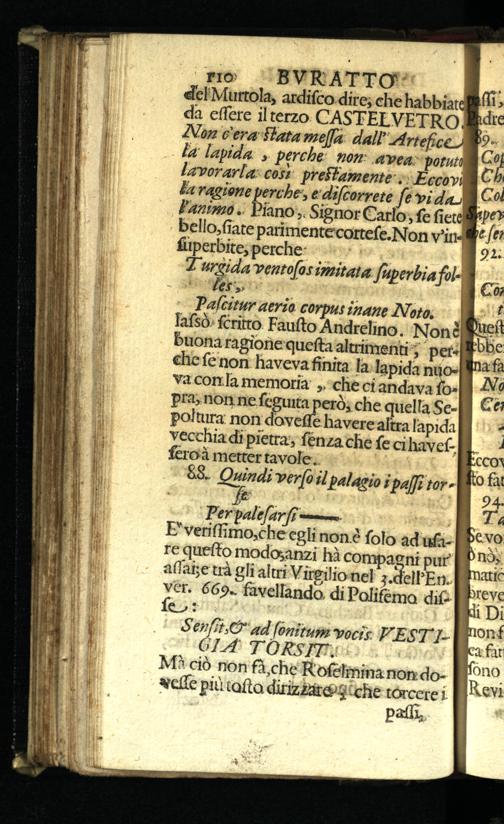 110 BVRATTO
del Murtola, ardisco dire, che habbiate
da essere il terzo CASTELVETRO.
Non c'era stata messa dall' Artefice
la lapida, perche non avea potuto
lavorarla così prestamente. Eccovi
la ragione perche, e discorrete se vi da
l'animo. Piano, Signor Carlo, se siete
bello, siate parimente cortese. Non v'in-
superbite, perche
Turgida ventosos imitata superbia fol-
les,
Pascitur aerio corpus inane Noto.
lassò scritto Fausto Andrelino. Non è
buona ragione questa altrimenti, per-
che se non haveva finita la lapida nuo-
va con la memoria, che ci andava so-
pra, non ne seguita però, che quella Se-
poltura non dovesse havere altra lapida
vecchia di pietra, senza che se ci haves-
sero à metter tavole.
88. Quindi verso il palagio i passi tor-
se
Per palesarsi ———
E' verissimo, che egli non è solo ad usa-
re questo modo; anzi hà compagni pur'
assai; e trà gli altri Virgilio nel 3. dell'En.
ver. 669. favellando di Polifemo dis-
se:
Sensit, & ad sonitum vocis VESTI-
GIA TORSIT.
Mà ciò non fà, che Roselmina non do-
vesse più tosto dirizzare, che torcere i
passi,
passi,
Padre
89.
Cop
Ch
Col
Sapev
che ser
92.
Cor
t
Quest
rebbe
una fa
No
Cer
Eccov
sto fat
94.
Ta
Se vo
ò nò,
matic
breve
di Di
non f
ca fatt
sono
Revi